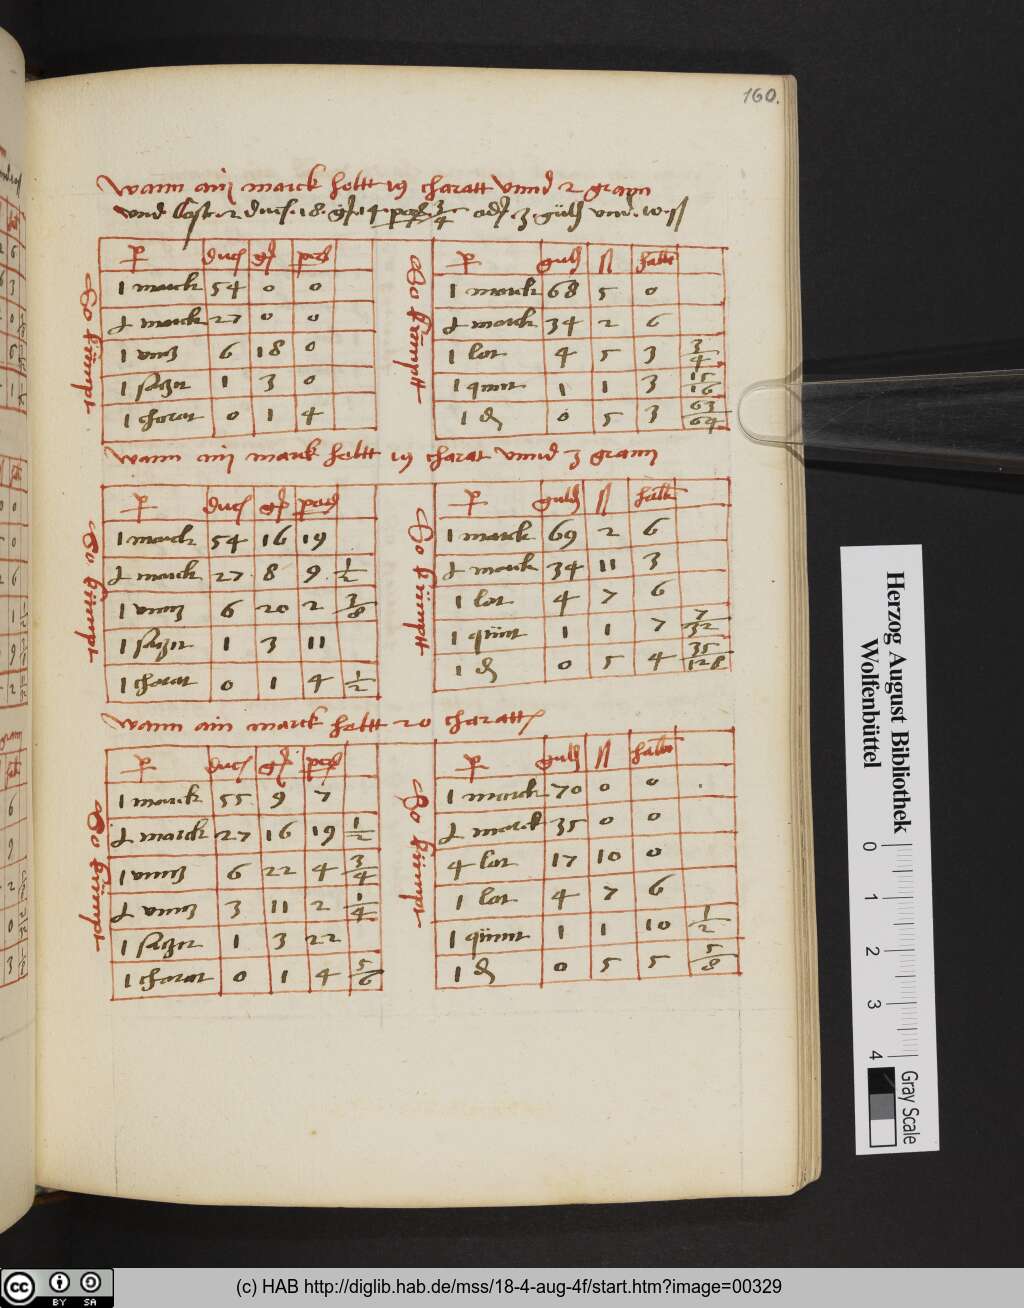 160.
wann ain marck heltt 19 charatt unnd 2 grann
unnd 2 duc. 18. g. 14. 3/4 od 3 guld unnd. 10 ß
p duc g
1 marck 54 0 0
½ marck 27 0 0
1 untz 6 18 0
1 1 3 0
1 charat 0 1 4
So kumpt
p guld ß hall
1 marck 68 5 0
½ marck 34 2 6
1 lot 4 5 3 3/4
1 quint 1 1 3 15/16
1 ₰ 0 5 3 63/64
So kumptt
wann ain marck heltt 19 charat unnd 3 grann
p duc g
1 marck 54 16 19
½ marck 27 8 9 1/2
1 untz 6 20 2 3/8
1 1 3 11
1 charat 0 1 4 1/2
So kumpt
p guld ß hall
1 marck 69 2 6
½ marck 34 11 3
1 lot 4 7 6
1 quint 1 1 7 7/32
1 ₰ 0 5 4 35/128
So kumptt
wann ain marck heltt 20 charatt
p duc g
1 marck 55 9 7
½ marck 27 16 19 1/2
1 untz 6 22 4 3/4
½ untz 3 11 2 1/4
1 1 3 22
1 charat 0 1 4 5/6
So kumpt
p guld ß hall
1 marck 70 0 0
½ marck 35 0 0
4 lot 17 10 0
1 lot 4 7 6
1 quint 1 1 10 1/2
1 ₰ 0 5 5 5/8
So kumpt
Herzog August Bibliothek
Wolfenbüttel
0 1 2 3 4
Gray Scale
cc BY SA
(c) HAB http://diglib.hab.de/mss/18-4-aug-4f/start.htm?image=00329